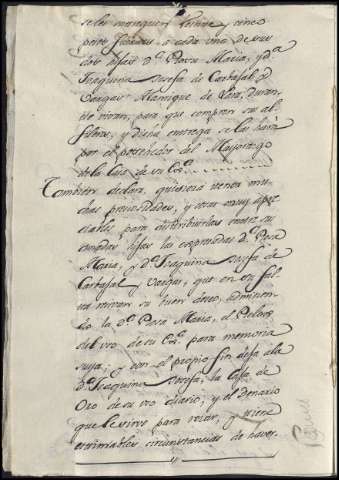 se les mangue Treinta, y cinco
pesos fuertes a cada una de sus
dos hijas Dª Rosa Maria, y Dª
Joaquina Josefa de Carbajal y
Vargas Manrique de Lara, duran-
te vivan, para que compren sus al-
fileres, y dicha entrega se las hará
por el poseedor del Mayorazgo
de la Casa de su Exª
Tambien declara, quisiera tener mu-
chas preciosidades, y otras muy apre-
ciables, para distribuirlas entre su
amadas hijas las expresadas Dª Rosa
Maria, y Dª Joaquina Josefa de
Carbajal y Vargas, que en su fil
su buen deseo, admitien-
do la Dª Rosa Maria, el Relox
del uso de su Exª para memoria
suya; y con el propio fin dexa á la
Dª Joaquina Josefa, la Caxa de
Oro de su uso diario, y el denario
que le sirve para rezar, y tiene
estimables circunstancias de haver